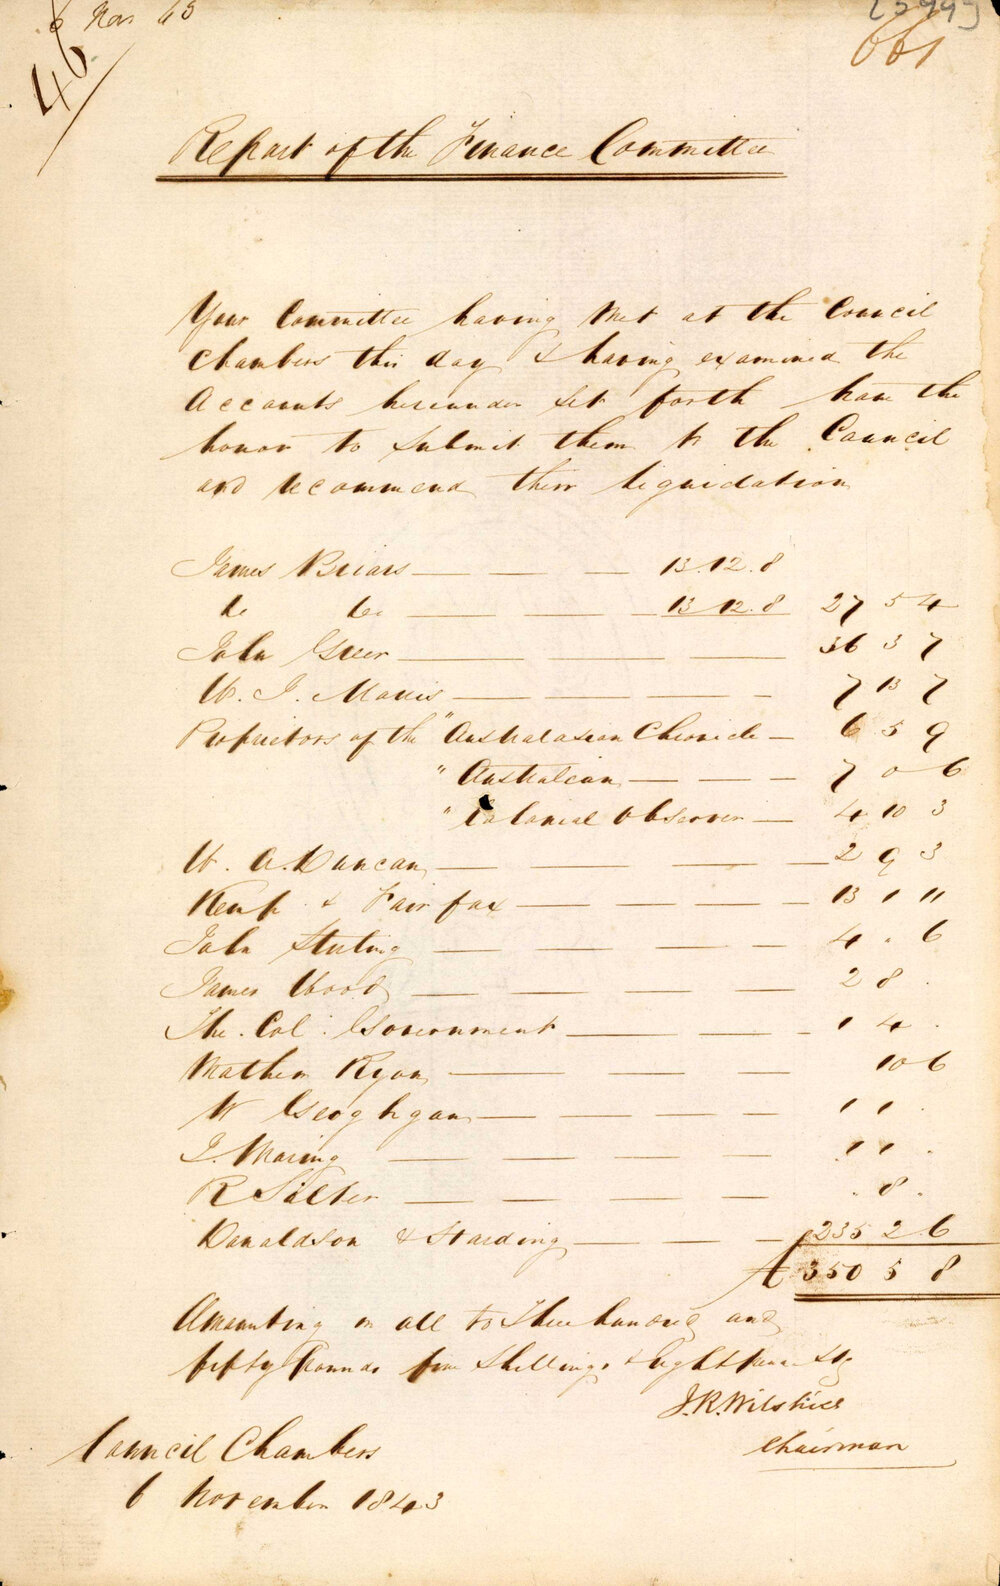 6 Nov 43
46
661
Report of the Finance Committee
Your Committee having met at the Council
Chambers this day & having examined the
Accounts hereunder set forth have the
honor to submit them to the Council
and recommend their liquidation
James Briars 13.12.8
Do Do 13 12.8 27 5 4
John Greer 36 3 7
W. J. Morris 7 13 7
Proprietors of the "Australasian Chronicle 6 5 9
" Australian 7 0 6
" Colonial Observer 4 10 3
W. A. Duncan 2 9 3
Kemp & Fairfax 13 1 11
John Sterling 4 " 6
James Wood 2 8 .
The Col: Government 1 4 .
Mathew Ryan 10 6
W Geoghgan 1 1 .
J. Waring 1 1 .
R Salter . 8 .
Donaldson & Starding 235 2 6
£ 350 5 8
Amounting in all to Three hundred and
fifty Pounds five Shillings & Eight pence Stg
J.R. Wilshire
Chairman
Council Chambers
6 November 1843